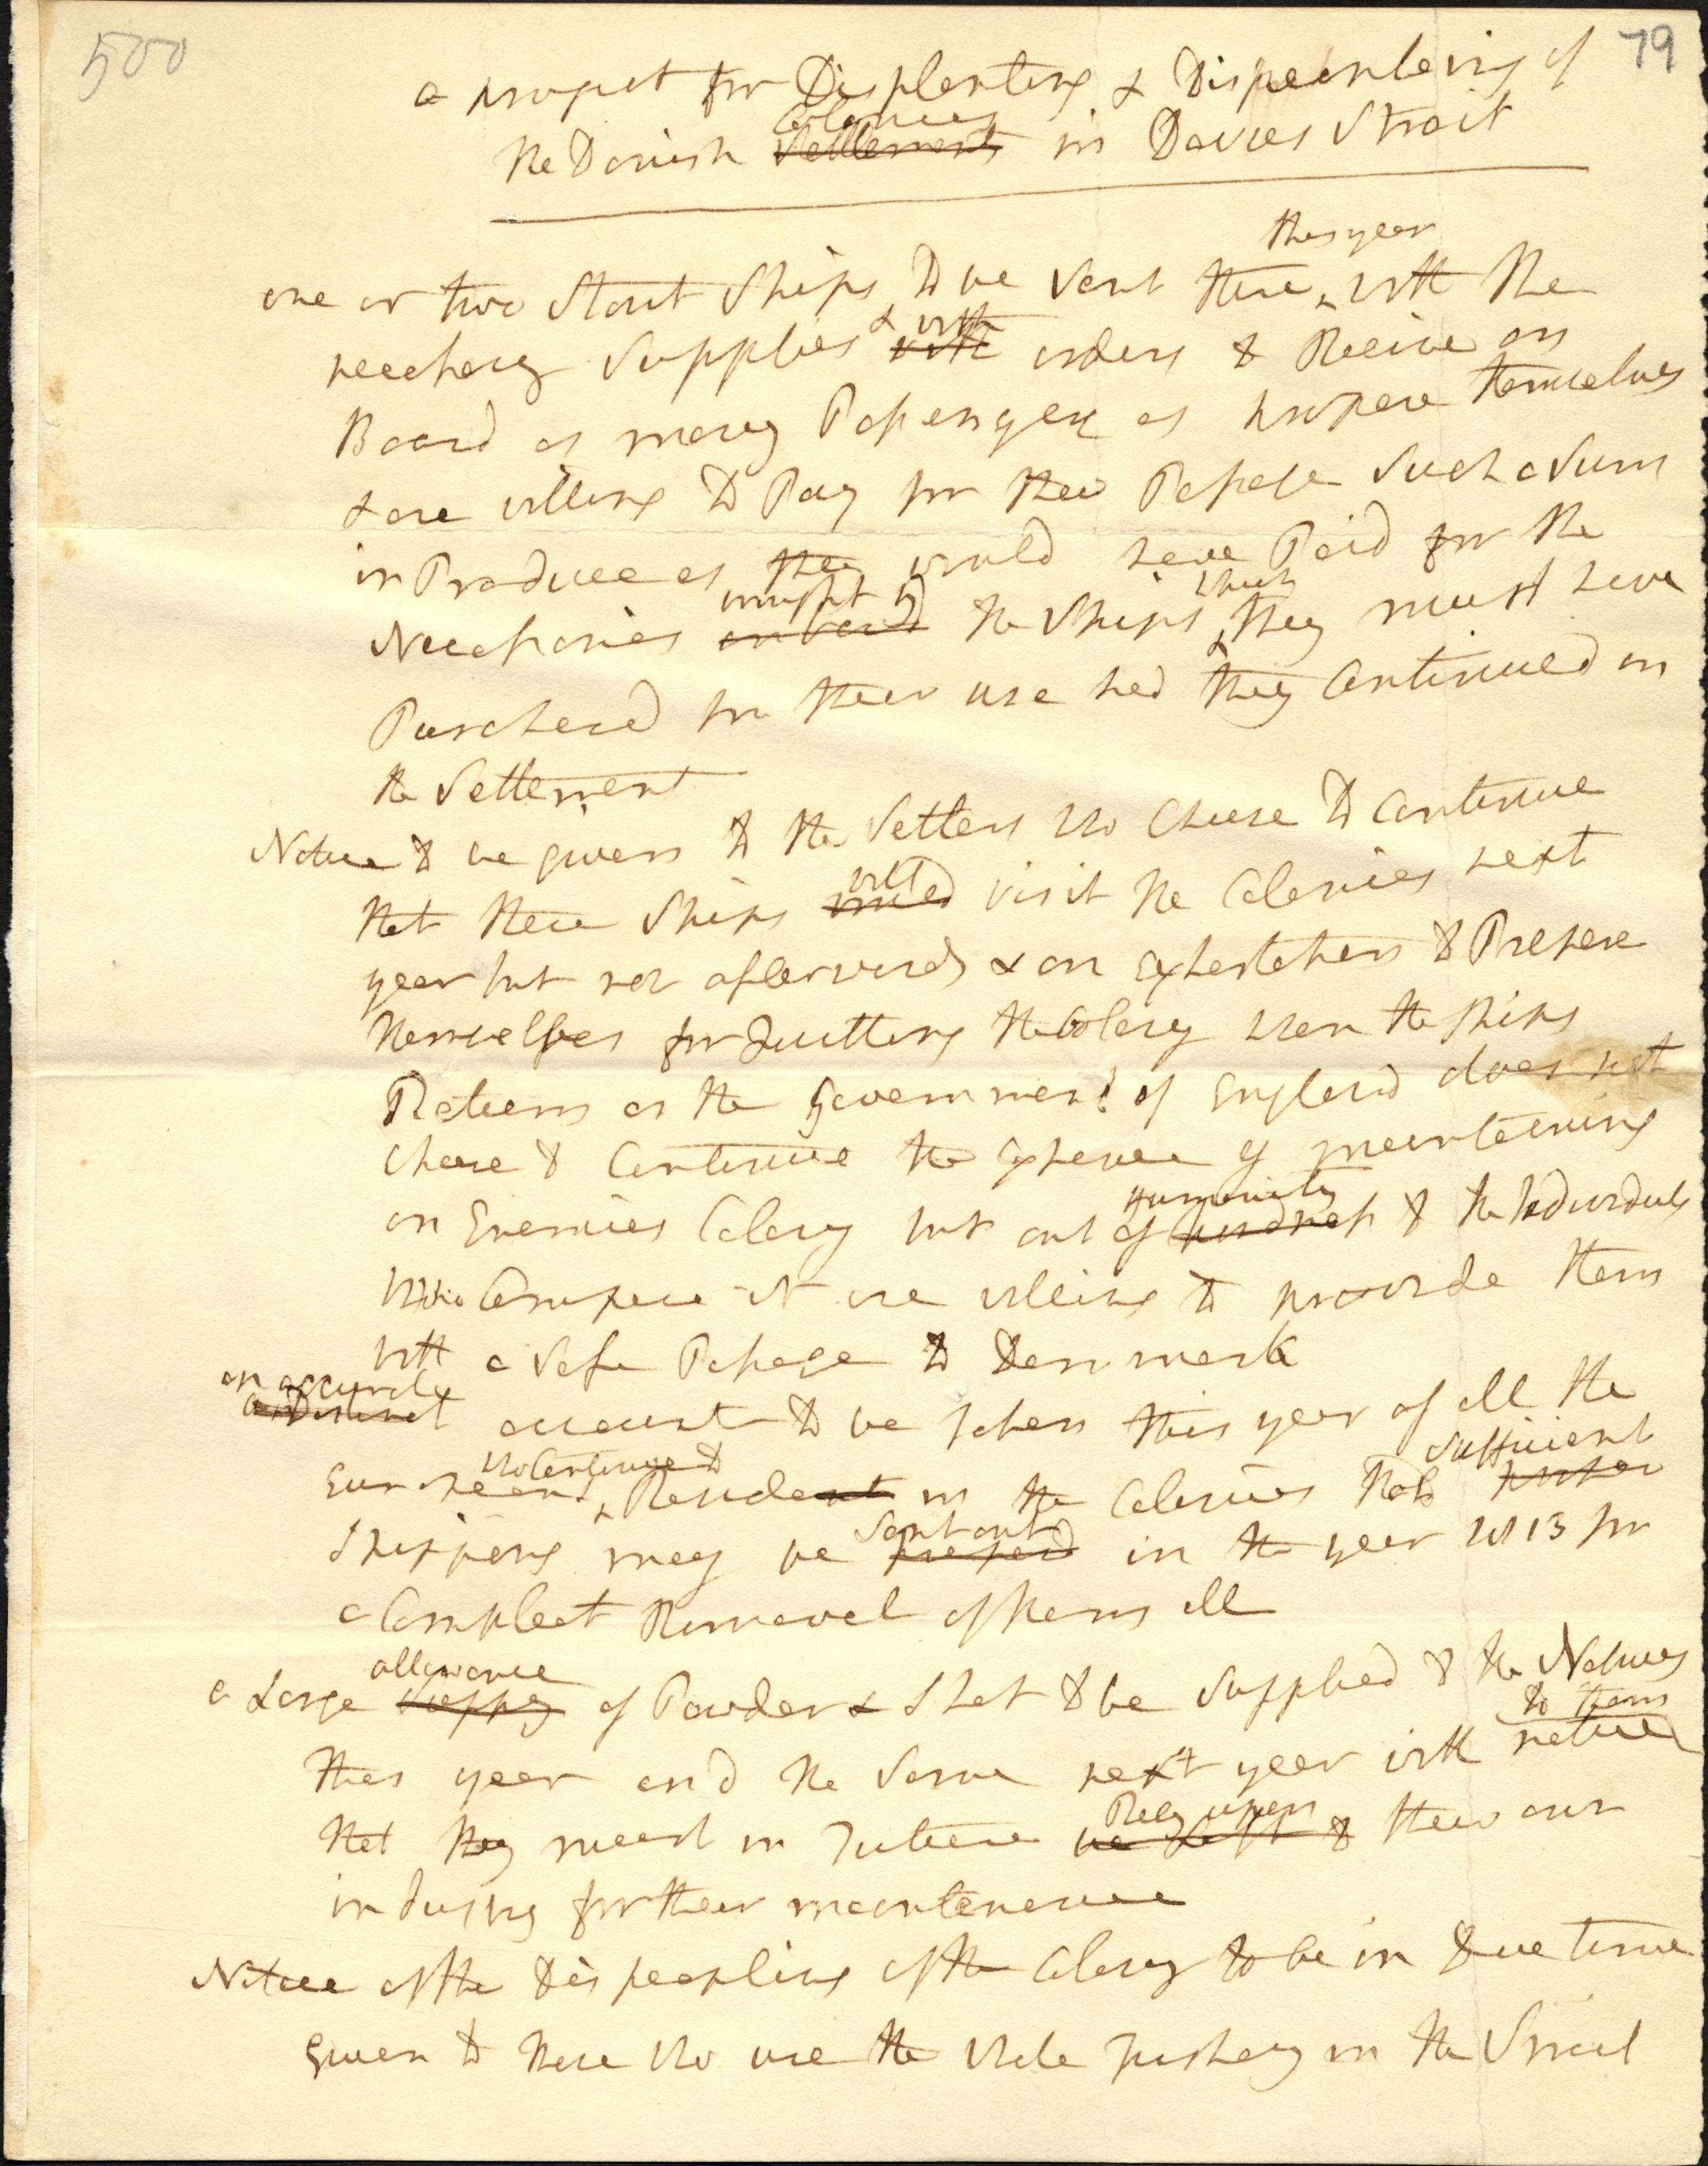 500
79
a project for Displanting & Dispeopleing of
Colonies
the Danish Settlements in Davies Strait
this year
one or two Stout Ships to be sent there with the
necessary Supplies & with with orders to Receive on
Board as many Passengers as prepare themselves
& are willing to Pay for their Passage Such a Sum
in Produce as they would have Paid for the
brought by which
Necessaries on board the Ships they must have
Purchased for their use had they Continued in
the Settlement
Notice to be given to the Settlers who Chuse to Continue
will
that these Ships would visit the Colonies next
year but not afterwards & an Exhortation to Prepare
themselves for Quitting the Colony when the Ships
Return as the Government of England does not
chuse to Continue the Expence of maintaining
humanity
an Enemies Colony but out of kindness to the Individuals
who Compose it are willing to provide them
with a Safe Passage to Denmark
an accurate
a Distinct account to be taken this year of all the
who Continue to Sufficient
Europeans Resident in the Colonies that proper
sent out
Shipping may be prepard in the year 1813 for
a Compleat Removal of them all
allowance
a Large Supply of Powder & Shot to be Supplied to the Natives
to them
this year and the Same next year with notice
Rely upon
that they must in future be left to their own
industry for their maintenance
Notice of the dispeopling of the Colony to be in due time
given to those who use the Whale Fishery in the Strait